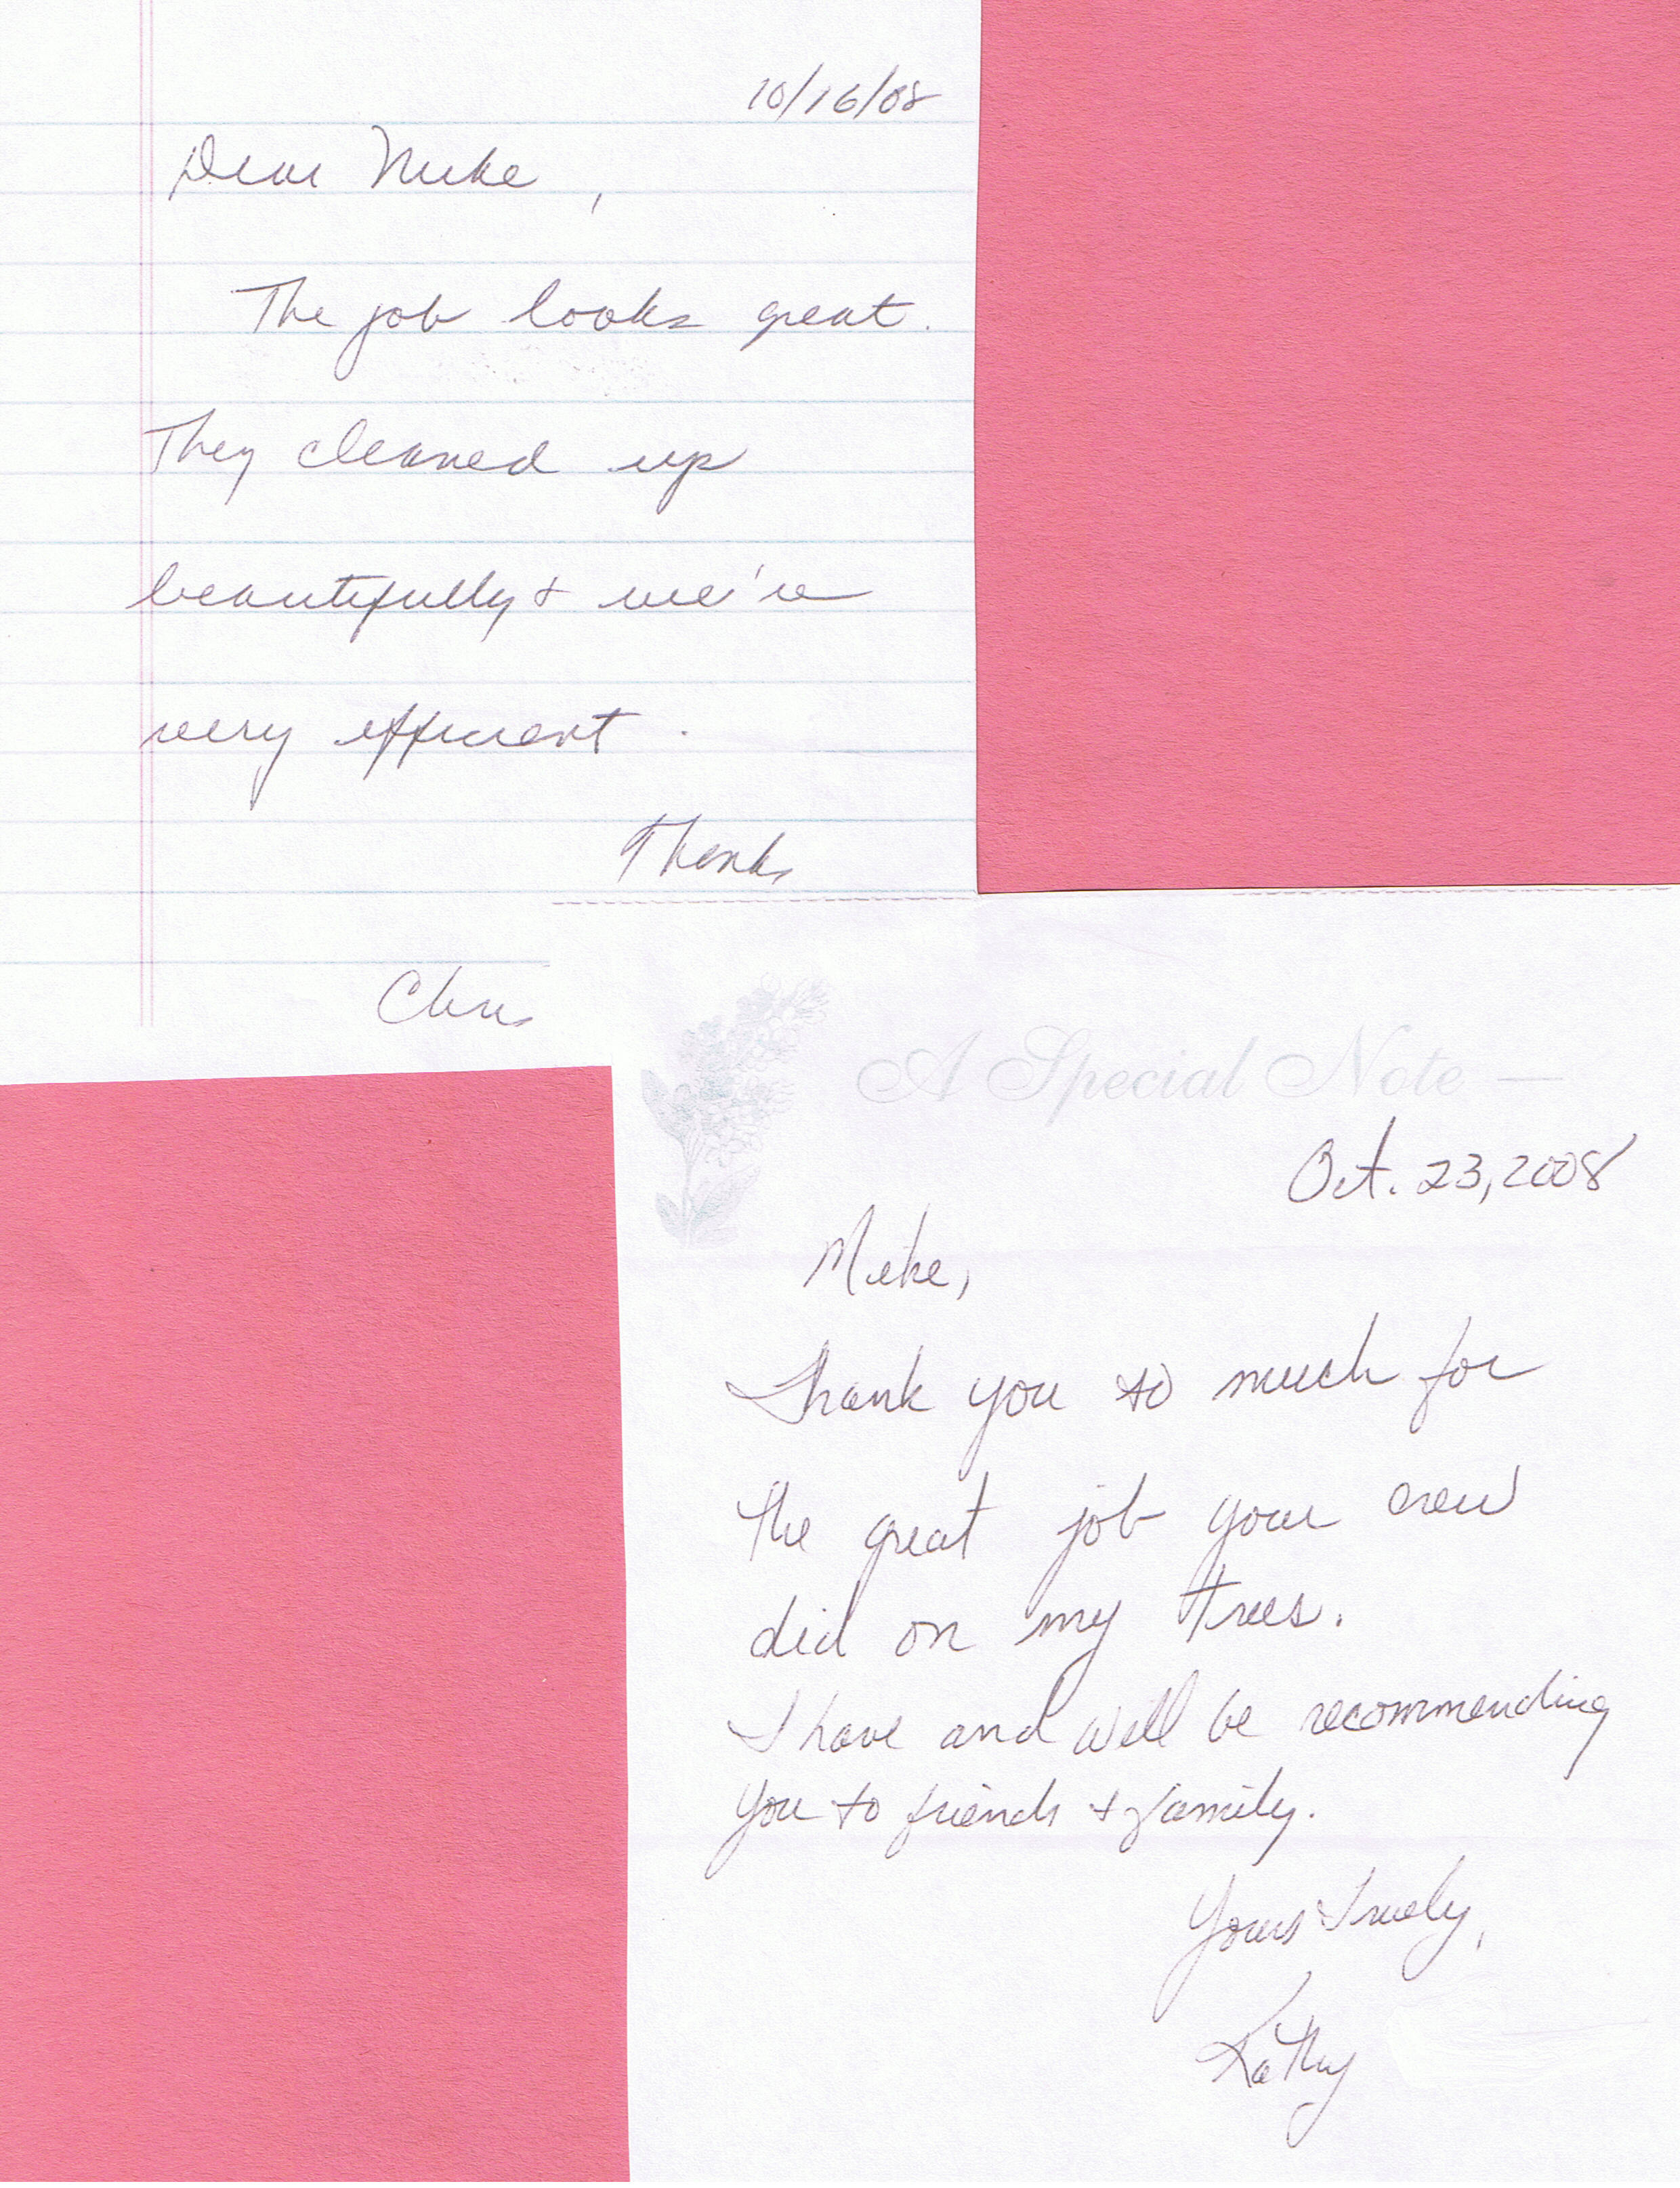 10/16/08
Dear Mike,
The job looks great.
They cleaned up
beautifully + we're
very efficient.
Thanks
Chris
A Special Note —
Oct. 23, 2008
Mike,
Thank you so much for
the great job your crew
did on my trees.
I have and will be recommending
you to friends + family.
Yours Truely,
Kathy